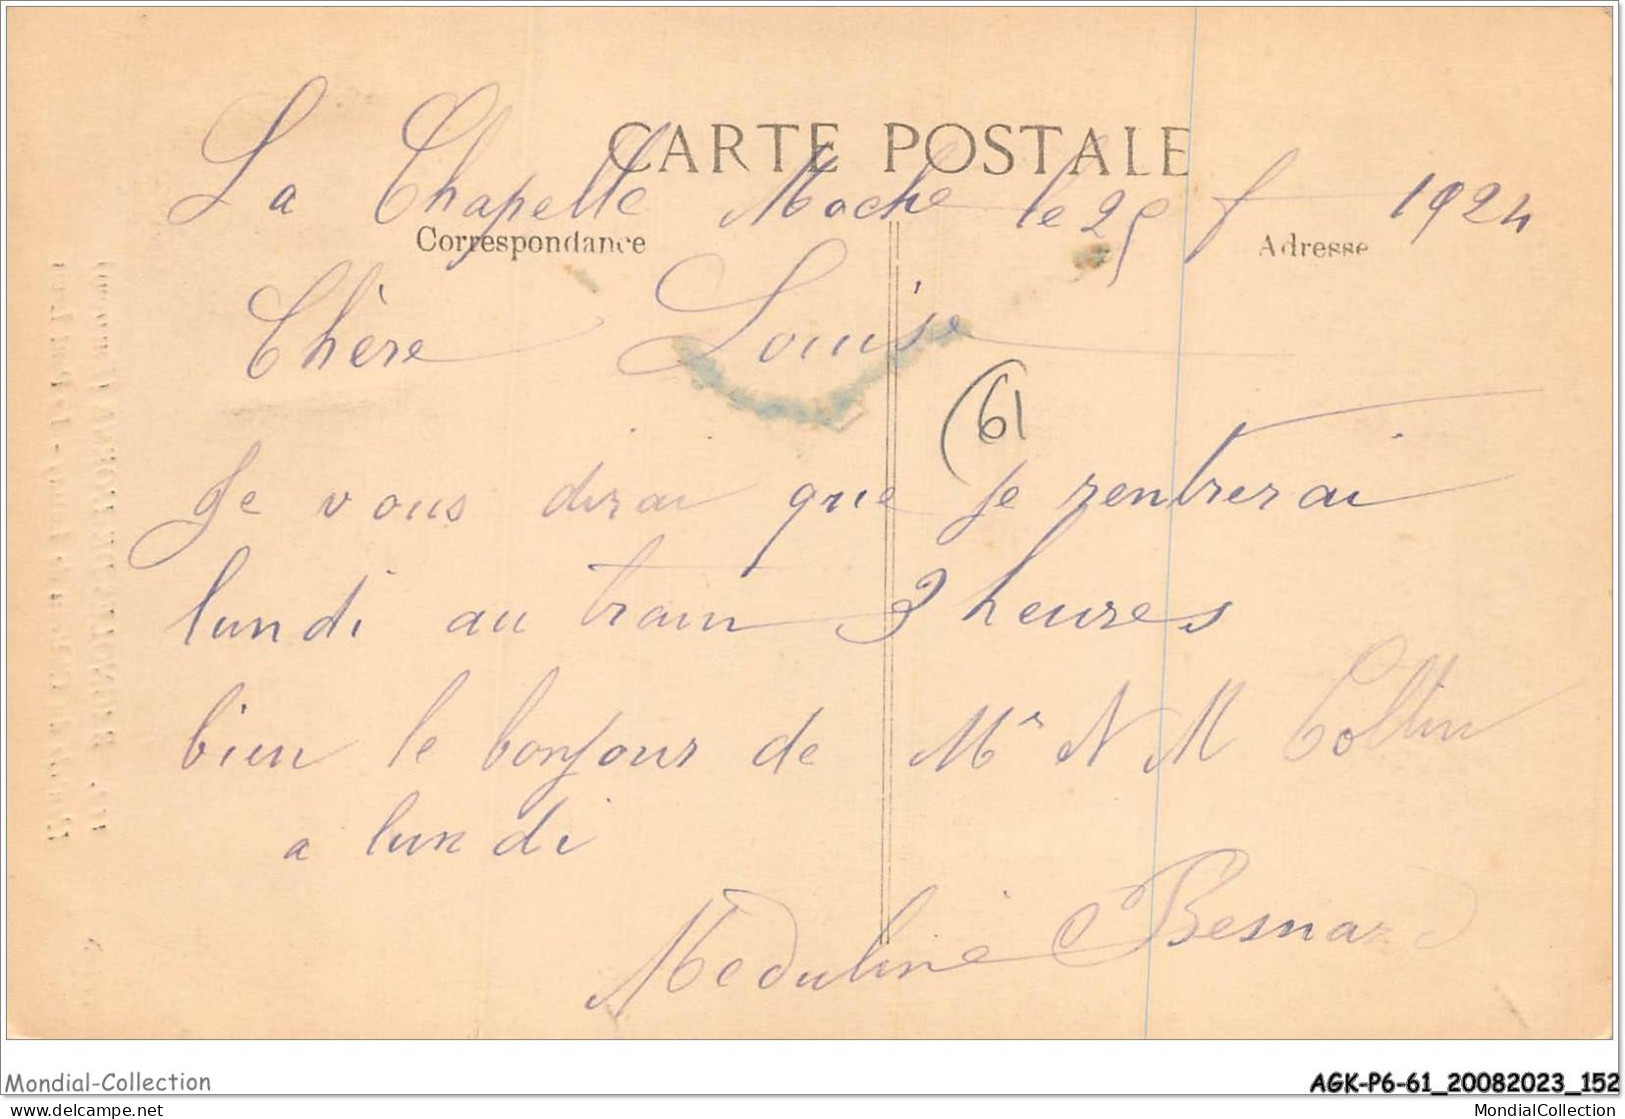 CARTE POSTALE
La Chapelle Moche le 25 f 1924
Correspondance
Adresse
Chère Louise
(61
Je vous dirai que je rentrerai
lundi au train 3 heures
bien le bonjour de Mr N M Collin
a lundi
Meduline Besnard
Mondial-Collection
AGK-P6-61_20082023_152
delcampe.net
MondialCollection